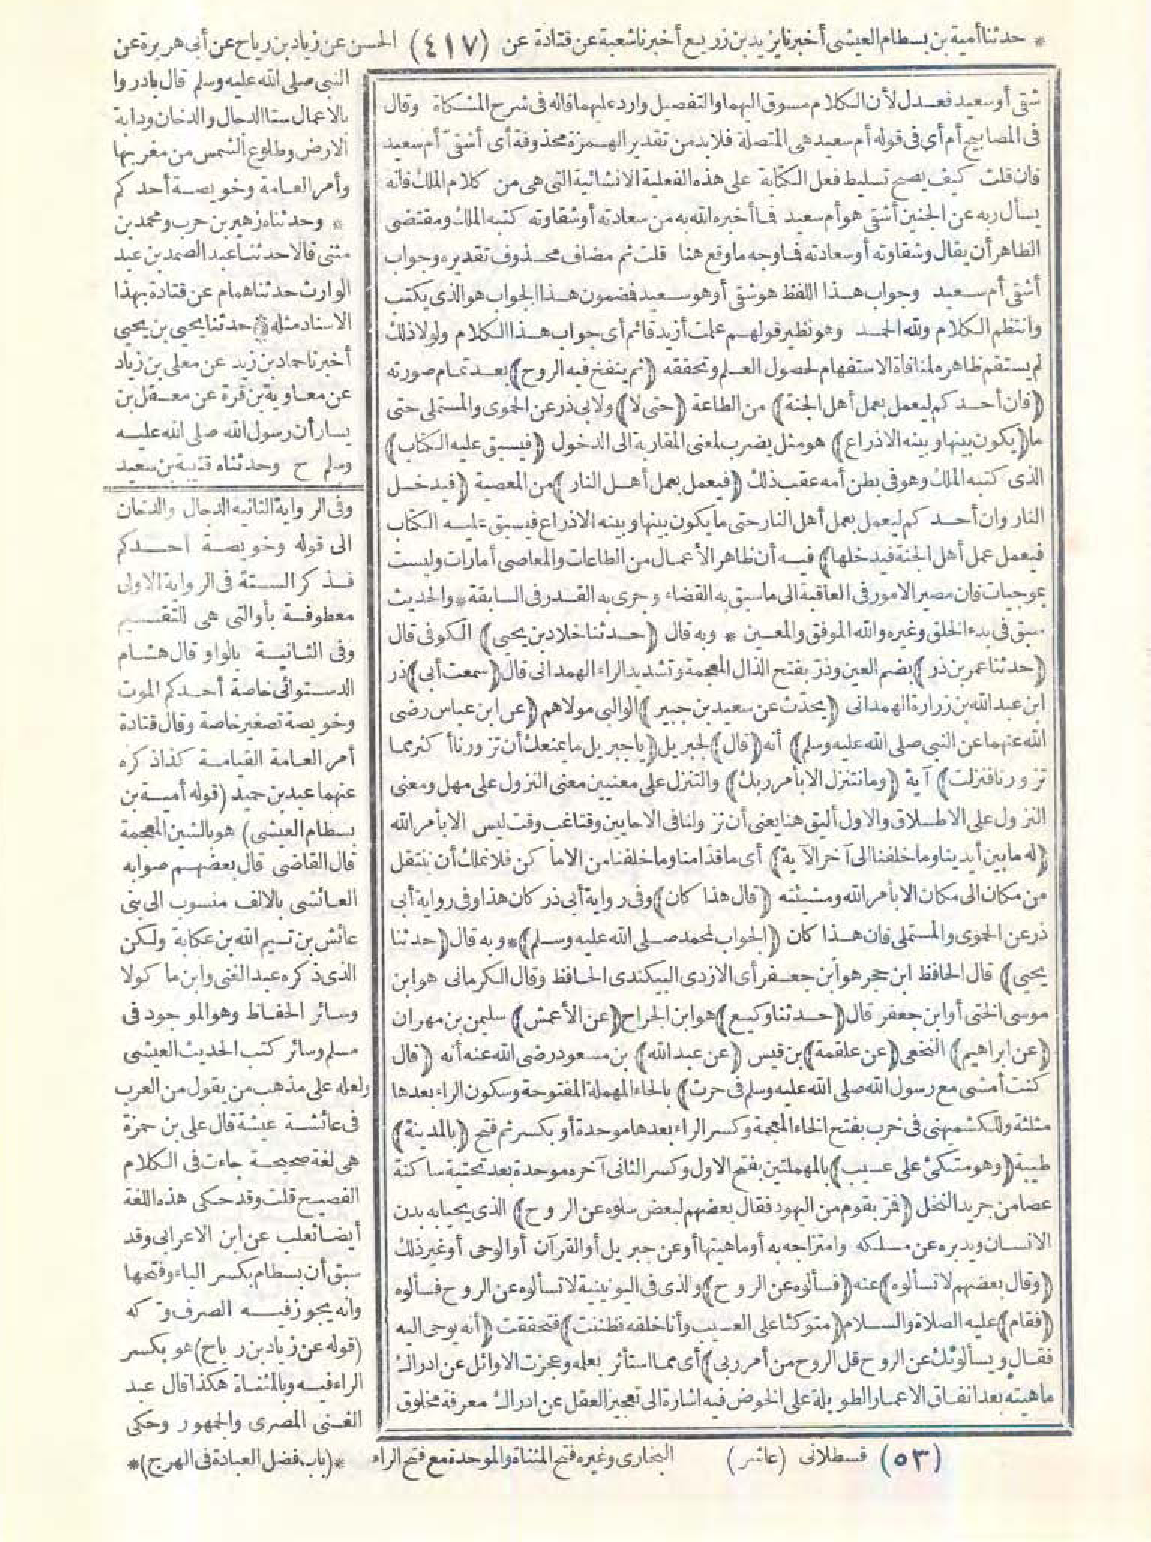 * حدثنا أمية بن بسطام العيشى أخبرنا يزيد بن زريع أخبرنا شعبة عن قتادة عن (٤١٧) الحسن عن زياد بن رياح عن أبى هريرة عن
شقى أو سعيد فعدل لأن الكلام مسوق اليهما والتفصيل وارد عليهما قاله فى شرح المشكاة وقال
فى المصابيح أم أى فى قوله أم سعيد هى المتصلة فلابد من تقدير الهمزة محذوفة أى أشقى أم سعيد
فان قلت كيف يصح تسليط فعل الكتابة على هذه الفعلية الانشائية التى هى من كلام الملك فانه
يسأل ربه عن الجنين أشقى هو أم سعيد فما أخبره الله به من سعادته أو شقاوته كتبه الملك ومقتضى
الظاهر أن يقال وشقاوته أو سعادته فما وجه ما وقع هنا قلت ثم مضاف محذوف تقديره وجواب
أشقى أم سعيد وجواب هذا اللفظ هو شقى أو هو سعيد فضمون هذا الجواب هو الذى يكتب
وانتظم الكلام ولله الحمد وهو نظير قولهم علمت أزيد قائم أى جواب هذا الكلام ولولا ذلك
لم يستقم ظاهره لمنافاة الاستفهام لحصول العلم وتحققه (ثم ينفخ فيه الروح) بعد تمام صورته
(فان أحدكم ليعمل بعمل أهل الجنة) من الطاعة (حتى لا) ولابى ذر عن الحموى والمستملى حتى
ما (يكون بينها وبينه الا ذراع) هو مثل يضرب لمعنى المقاربة الى الدخول (فيسبق عليه الكتاب)
الذى كتبه الملك وهو فى بطن أمه عقب ذلك (فيعمل بعمل أهل النار) من المعصية (فيدخل
النار وان أحدكم ليعمل بعمل أهل النار حتى ما يكون بينها وبينه الا ذراع فيسبق عليه الكتاب
فيعمل عمل أهل الجنة فيدخلها) فيه أن ظاهر الأعمال من الطاعات والمعاصى أمارات وليست
بموجبات فان مصير الامور فى العاقبة الى ما سبق به القضاء وجرى به القدر فى السابقة * والحديث
سبق فى بدء الخلق وغيره والله الموفق والمعين * وبه قال (حدثنا خلاد بن يحيى) الكوفى قال
(حدثنا عمر بن ذر) بضم العين وذر بفتح الذال المعجمة وتشديد الراء الهمدانى قال (سمعت أبى) ذر
ابن عبد الله بن زرارة الهمدانى (يحدث عن سعيد بن جبير) الوالبى مولاهم (عن ابن عباس رضى
الله عنهما عن النبى صلى الله عليه وسلم) أنه (قال) لجبريل (يا جبريل ما يمنعك أن تزورنا أكثر مما
تزورنا فنزلت) آية (وما نتنزل الا بأمر ربك) والتنزل على معنيين معنى النزول على مهل ومعنى
النزول على الاطلاق والاول أليق هنا يعنى أن نزولنا فى الاحايين وقتا غب وقت ليس الا بأمر الله
(له ما بين أيدينا وما خلفنا الى آخر الآية) أى ما قدامنا وما خلفنا من الاماكن فلا نملك أن ننتقل
من مكان الى مكان الا بأمر الله ومشيئته (قال هذا كان) وفى رواية أبى ذر كان هذا وفى رواية أبى
ذر عن الحموى والمستملى فان هذا كان (الجواب لمحمد صلى الله عليه وسلم) * وبه قال (حدثنا
يحيى) قال الحافظ ابن حجر هو ابن جعفر أى الازدى البيكندى الحافظ وقال الكرمانى هو ابن
موسى الختى أو ابن جعفر قال (حدثنا وكيع) هو ابن الجراح (عن الأعمش) سليمن بن مهران
(عن ابراهيم) النخعى (عن علقمة) بن قيس (عن عبد الله) بن مسعود رضى الله عنه أنه (قال
كنت أمشى مع رسول الله صلى الله عليه وسلم فى حرث) بالحاء المهملة المفتوحة وسكون الراء بعدها
مثلثة وللكشميهنى فى خرب بفتح الخاء المعجمة وكسر الراء بعدها موحدة أو بكسر ثم فتح (بالمدينة)
طيبة (وهو متكئ على عسيب) بالمهملتين بفتح الاول وكسر الثانى آخره موحدة بعد تحتية ساكنة
عصا من جريد النخل (فمر بقوم من اليهود فقال بعضهم لبعض سلوه عن الروح) الذى يحيا به بدن
الانسان ويدبره عن مسلكه وامتزاجه به أو ماهيتها أو عن جبريل أو القرآن أو الوحى أو غير ذلك
(وقال بعضهم لا تسألوه) عنه (فسألوه عن الروح) والذى فى اليونينية لا تسألوه عن الروح فسألوه
(فقام) عليه الصلاة والسلام (متوكئا على العسيب وأنا خلفه فظننت) فتحققت (أنه يوحى اليه
فقال ويسألونك عن الروح قل الروح من أمر ربى) أى مما استأثر بعلمه وعجزت الاوائل عن ادراك
ماهيته بعد انفاق الاعمار الطويلة على الخوض فيه اشارة الى تعجيز العقل عن ادراك معرفة مخلوق
النبى صلى الله عليه وسلم قال بادروا
بالاعمال ستا الدجال والدخان ودابة
الارض وطلوع الشمس من مغربها
وأمر العامة وخويصة أحدكم
* وحدثناه زهير بن حرب ومحمد بن
مثنى قالا حدثنا عبد الصمد بن عبد
الوارث حدثنا همام عن قتادة بهذا
الاسناد مثله * حدثنا يحيى بن يحيى
أخبرنا حماد بن زيد عن معلى بن زياد
عن معاوية بن قرة عن معقل بن
يسار أن رسول الله صلى الله عليه
وسلم ح وحدثناه قتيبة بن سعيد
وفى الرواية الثانية الدجال والدخان
الى قوله وخويصة أحدكم
فذكر الستة فى الرواية الاولى
معطوفة بأو التى هى للتقسيم
وفى الثانية بالواو قال هشام
الدستوائى خاصة أحدكم الموت
وخويصة تصغير خاصة وقال قتادة
أمر العامة القيامة كذا ذكره
عنهما عبد بن حميد (قوله أمية بن
بسطام العيشى) هو بالشين المعجمة
قال القاضى قال بعضهم صوابه
العائشى بالالف منسوب الى بنى
عائش بن تيم الله بن عكابة ولكن
الذى ذكره عبد الغنى وابن ماكولا
وسائر الحفاظ وهو الموجود فى
مسلم وسائر كتب الحديث العيشى
ولعله على مذهب من يقول من العرب
فى عائشة عيشة قال على بن حمزة
هى لغة صحيحة جاءت فى الكلام
الفصيح قلت وقد حكى هذه اللغة
أيضا ثعلب عن ابن الاعرابى وقد
سبق أن بسطام بكسر الباء وفتحها
وأنه يجوز فيه الصرف وتركه
(قوله عن زياد بن رياح) هو بكسر
الراء فيه وبالمثناة هكذا قال عبد
الغنى المصرى والجمهور وحكى
(٥٣) قسطلانى (عاشر) البخارى وغيره فتح المثناة والموحدة مع فتح الراء *(باب فضل العبادة فى الهرج)*